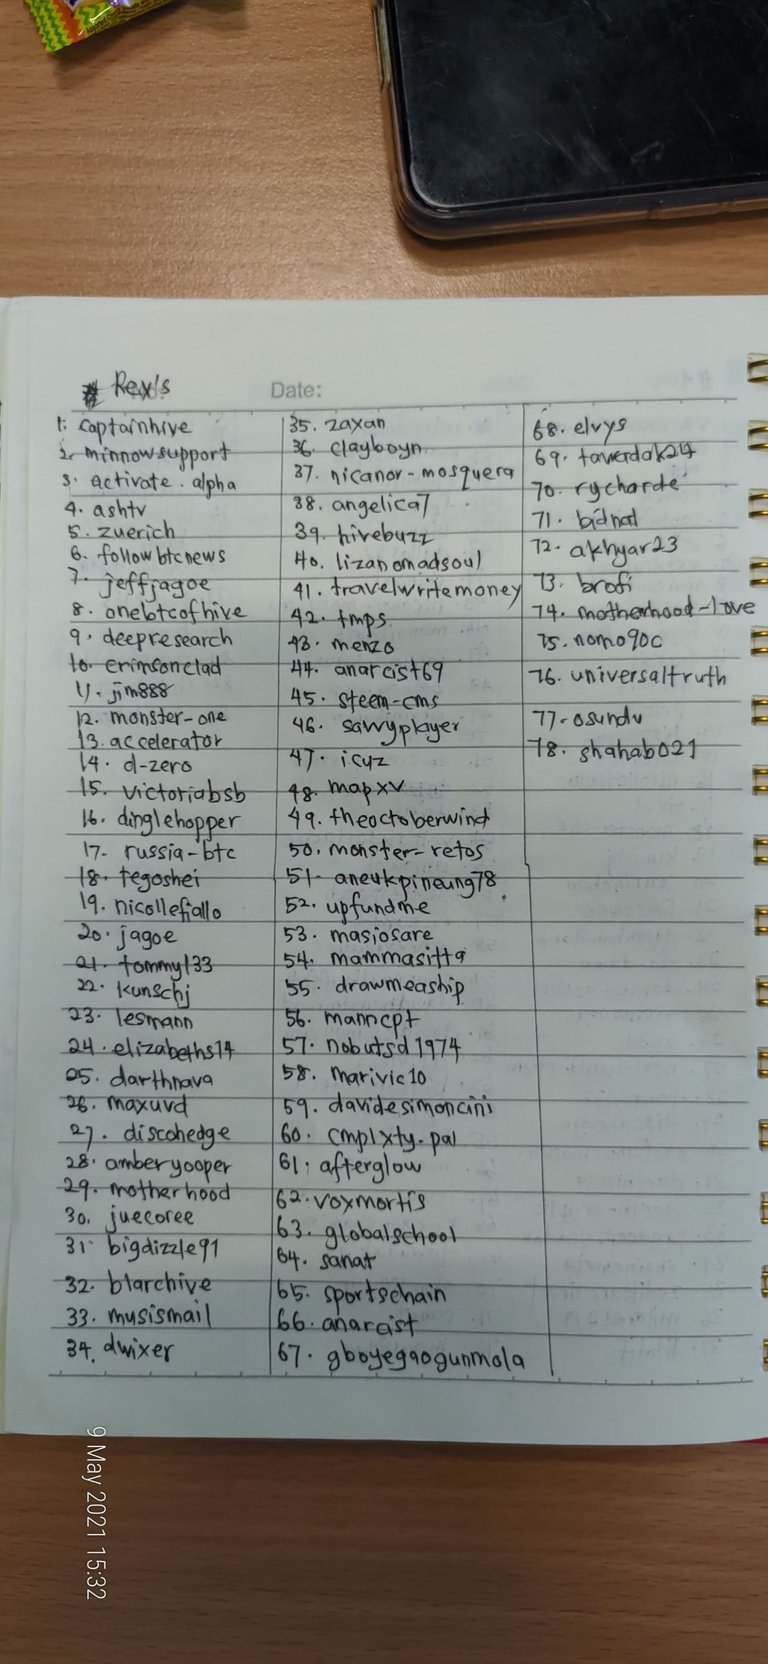 # Rex's
Date:
1. captainhive
2. minnowsupport
3. activate.alpha
4. ashtv
5. zuerich
6. followbtcnews
7. jeffjagoe
8. onebtcofhive
9. deepresearch
10. crimsonclad
11. jim888
12. monster-one
13. accelerator
14. d-zero
15. victoriabsb
16. dinglehopper
17. russia-btc
18. tegoshei
19. nicollefiallo
20. jagoe
21. tommyl33
22. kunschj
23. lesmann
24. elizabeths14
25. darthnava
26. maxuvd
27. discohedge
28. amberyooper
29. motherhood
30. juecoree
31. bigdizzle91
32. blarchive
33. musismail
34. dwixer
35. zaxan
36. clayboyn
37. nicanor-mosquera
38. angelica7
39. hivebuzz
40. lizanomadsoul
41. travelwritemoney
42. tmps
43. menzo
44. anarcist69
45. steem-cms
46. savvyplayer
47. icuz
48. mapxv
49. theoctoberwind
50. monster-retos
51. aneukpineung78
52. upfundme
53. masiosare
54. mammasitta
55. drawmeaship
56. manncpt
57. nobutsd1974
58. marivic10
59. davidesimoncini
60. cmplxty.pal
61. afterglow
62. voxmortis
63. globalschool
64. sanat
65. sportschain
66. anarcist
67. gboyegaogunmola
68. elvys
69. tawadak24
70. rycharde
71. bidnat
72. akhyar23
73. brofi
74. motherhood-love
75. nomo90c
76. universaltruth
77. osundu
78. shahab021
9 May 2021 15:32